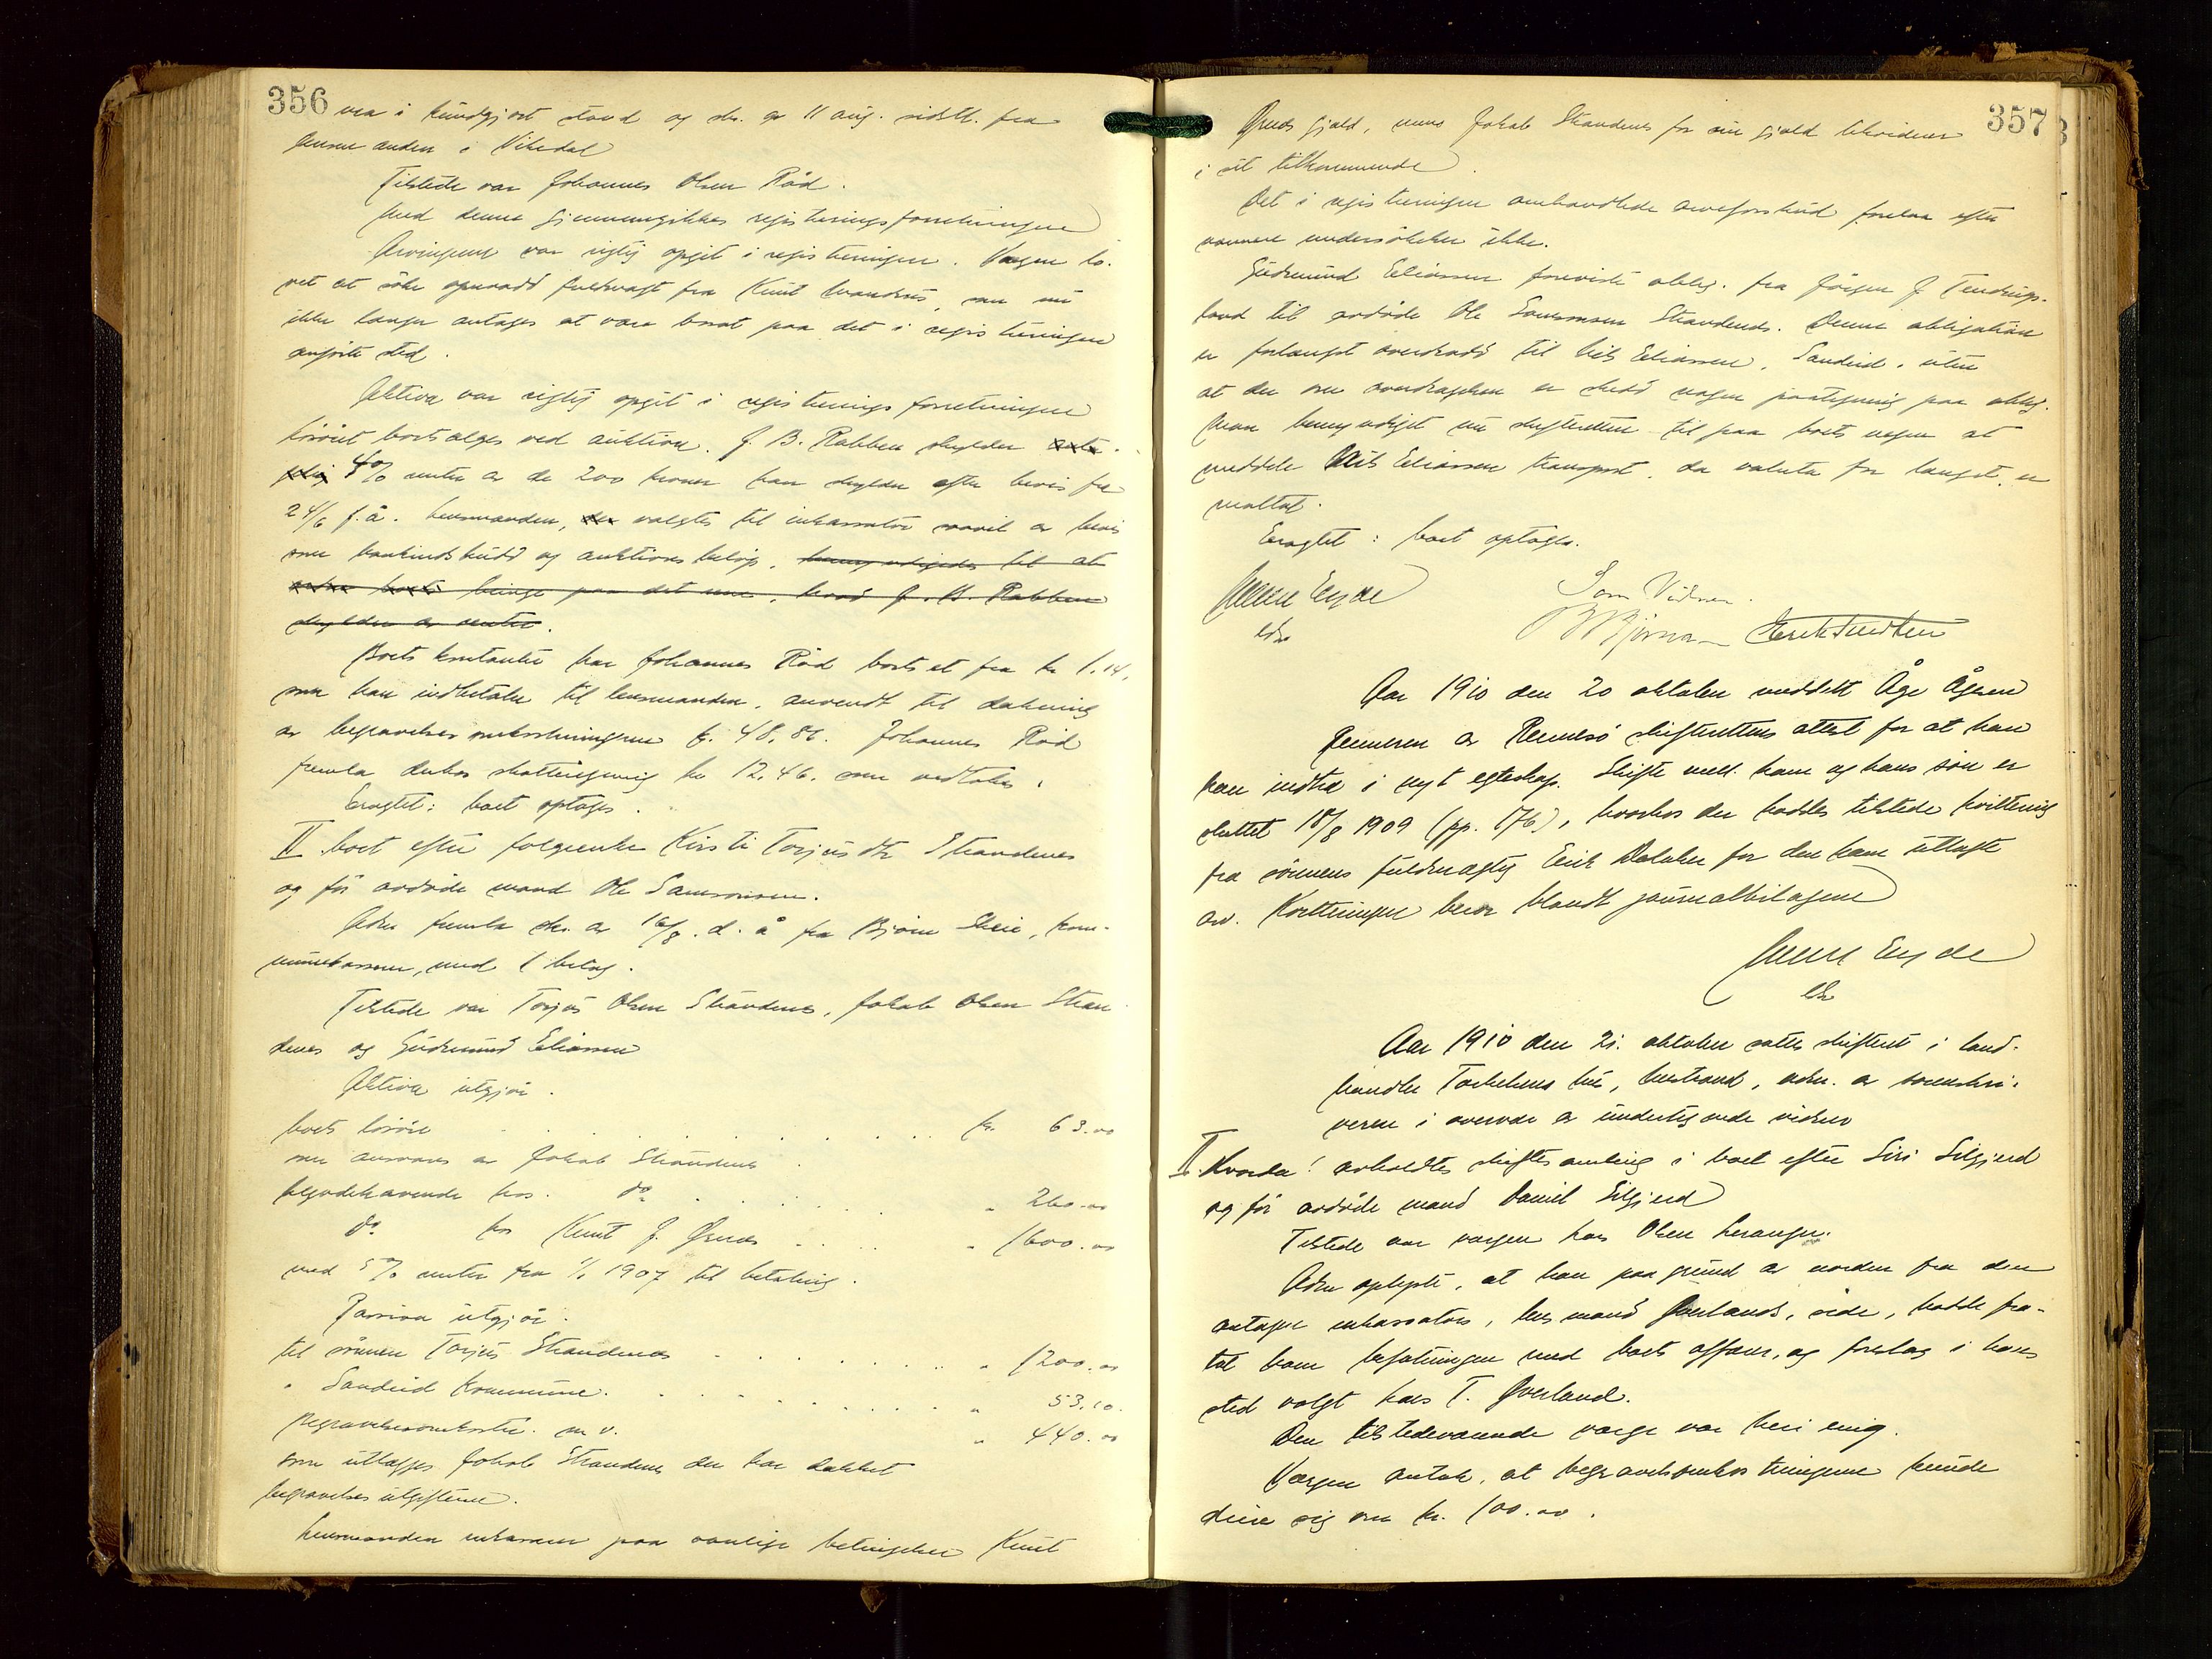 356
i kundgjort stand og skr. av 11 aug. sidstl. fra
lensmanden i Vikedal
Tilstede var Johannes Olsen Rød.
Med denne gjennemgikkes registreringsforretningen
Arvingene var rigtig opgit i registreringen. Vergen lo-
vet at søke opnaadd fuldmagt fra Knut som nu
ikke længer antages at være bosat paa det i registreringen
angivte sted.
Aktiva var rigtig opgit i registreringsforretningen
Løsøret bortsælges ved auktion. J. B. Rabben skylder
4% renter av de 200 kroner han skylder efter bevis fra
24/6 f.å. Lensmanden, valgtes til inkassator saavel av bevis
som bankindskudd og auktionsbeløp, bemyndiges til at
bringe paa det rene, hvad J. B. Rabben
skylder av renter.
Boets kontanter har Johannes Rød bortset fra kr 1.14,
som han indbetaler til lensmanden, anvendt til dækning
av begravelsesomkostningene kr. 48,86. Johannes Rød
fremla derhos skatteregning kr. 12.46. som vedtokes.
Eragtet: boet optages.
II boet efter folgeenke Kirsti Torjusdtr Strandenes
og før avdøde mand Ole Samsonsen.
Adm fremla skr. av 16/8 d. å fra Bjørn Skeie, kom-
munekasserer, med 1 bilag.
Tilstede var Torjus Olsen Strandenes, Jakob Olsen Stran
denes og Gudmund Eliassen
Aktiva utgjør.
boets løsøre kr. 63.00
som ansvares av Jakob Strandenes
tilgodehavende hos. do " 260.00
do hos Knut J. Ørnes " 1600.00
med 5% renter fra 1/1 1907 til betaling.
Passiva utgjør.
til sønnen Torjus Strandenes " 1200.00
" Sandeid kommune. " 53.10.
Begravelsesomkostn. m v. " 440.00
som utlægges Jakob Strandenes der har dækket
begravelsesutgiftene.
Lensmanden inkasserer paa vanlige betingelser Knut
357
Ørnes gjæld, mens Jakob Strandenes for sin gjæld likviderer
i sit tilkommende.
Det i registreringen omhandlede arveforskud forelaa efter
nærmere undersøkelse ikke.
Gudmund Eliassen foreviste oblig. fra Jørgen J.
land til avdøde Ole Samsonsen Strandenes. Denne obligation
er forlængst overdradd til Nils Eliassen, Sandeid, uten
at der om overdragelsen er skedd nogen paategning paa oblig.
Man bemyndiget nu skifteretten til paa boets vegne at
meddele Nils Eliassen transport, da valuta for længst er
mottat.
Eragtet: boet optages.
Som Vidner.
Aar 1910 den 20 oktober meddelt Åge Ågesen
Renneren av Rennesø skifterettens attest for at han
kan indtræ i nyt egteskap. Skifte mell. ham og hans søn er
sluttet 18/8 1909 (pp. 176), hvorhos der haddes tilstede kvittering
fra sønnens fuldmægtig Erik for den ham utlagte
arv. Kvitteringen beror blandt journalbilagene
Aar 1910 den 21. oktober sattes skifteret i land-
handler Torkelsens hus, Nerstrand, adm. av sorenskri-
veren i overvær av undertegnede vidner
II. Hvorda! avholdtes skiftesamling i boet efter Siri Silgjerd
og før avdøde mand Daniel Silgjerd
Tilstede var vergen Hans Olsen
Adm oplyste, at han paa grund av den fra den
antagne inkassator, lensmand Øverlands, side, hadde fra-
tat ham befatningen med boets affærer, og foreslog i hans
sted valgt Hans T. Øverland.
Den tilstedeværende verge var heri enig.
Vergen antok, at begravelsomkostningene kunde
dreie sig om kr. 100.00.